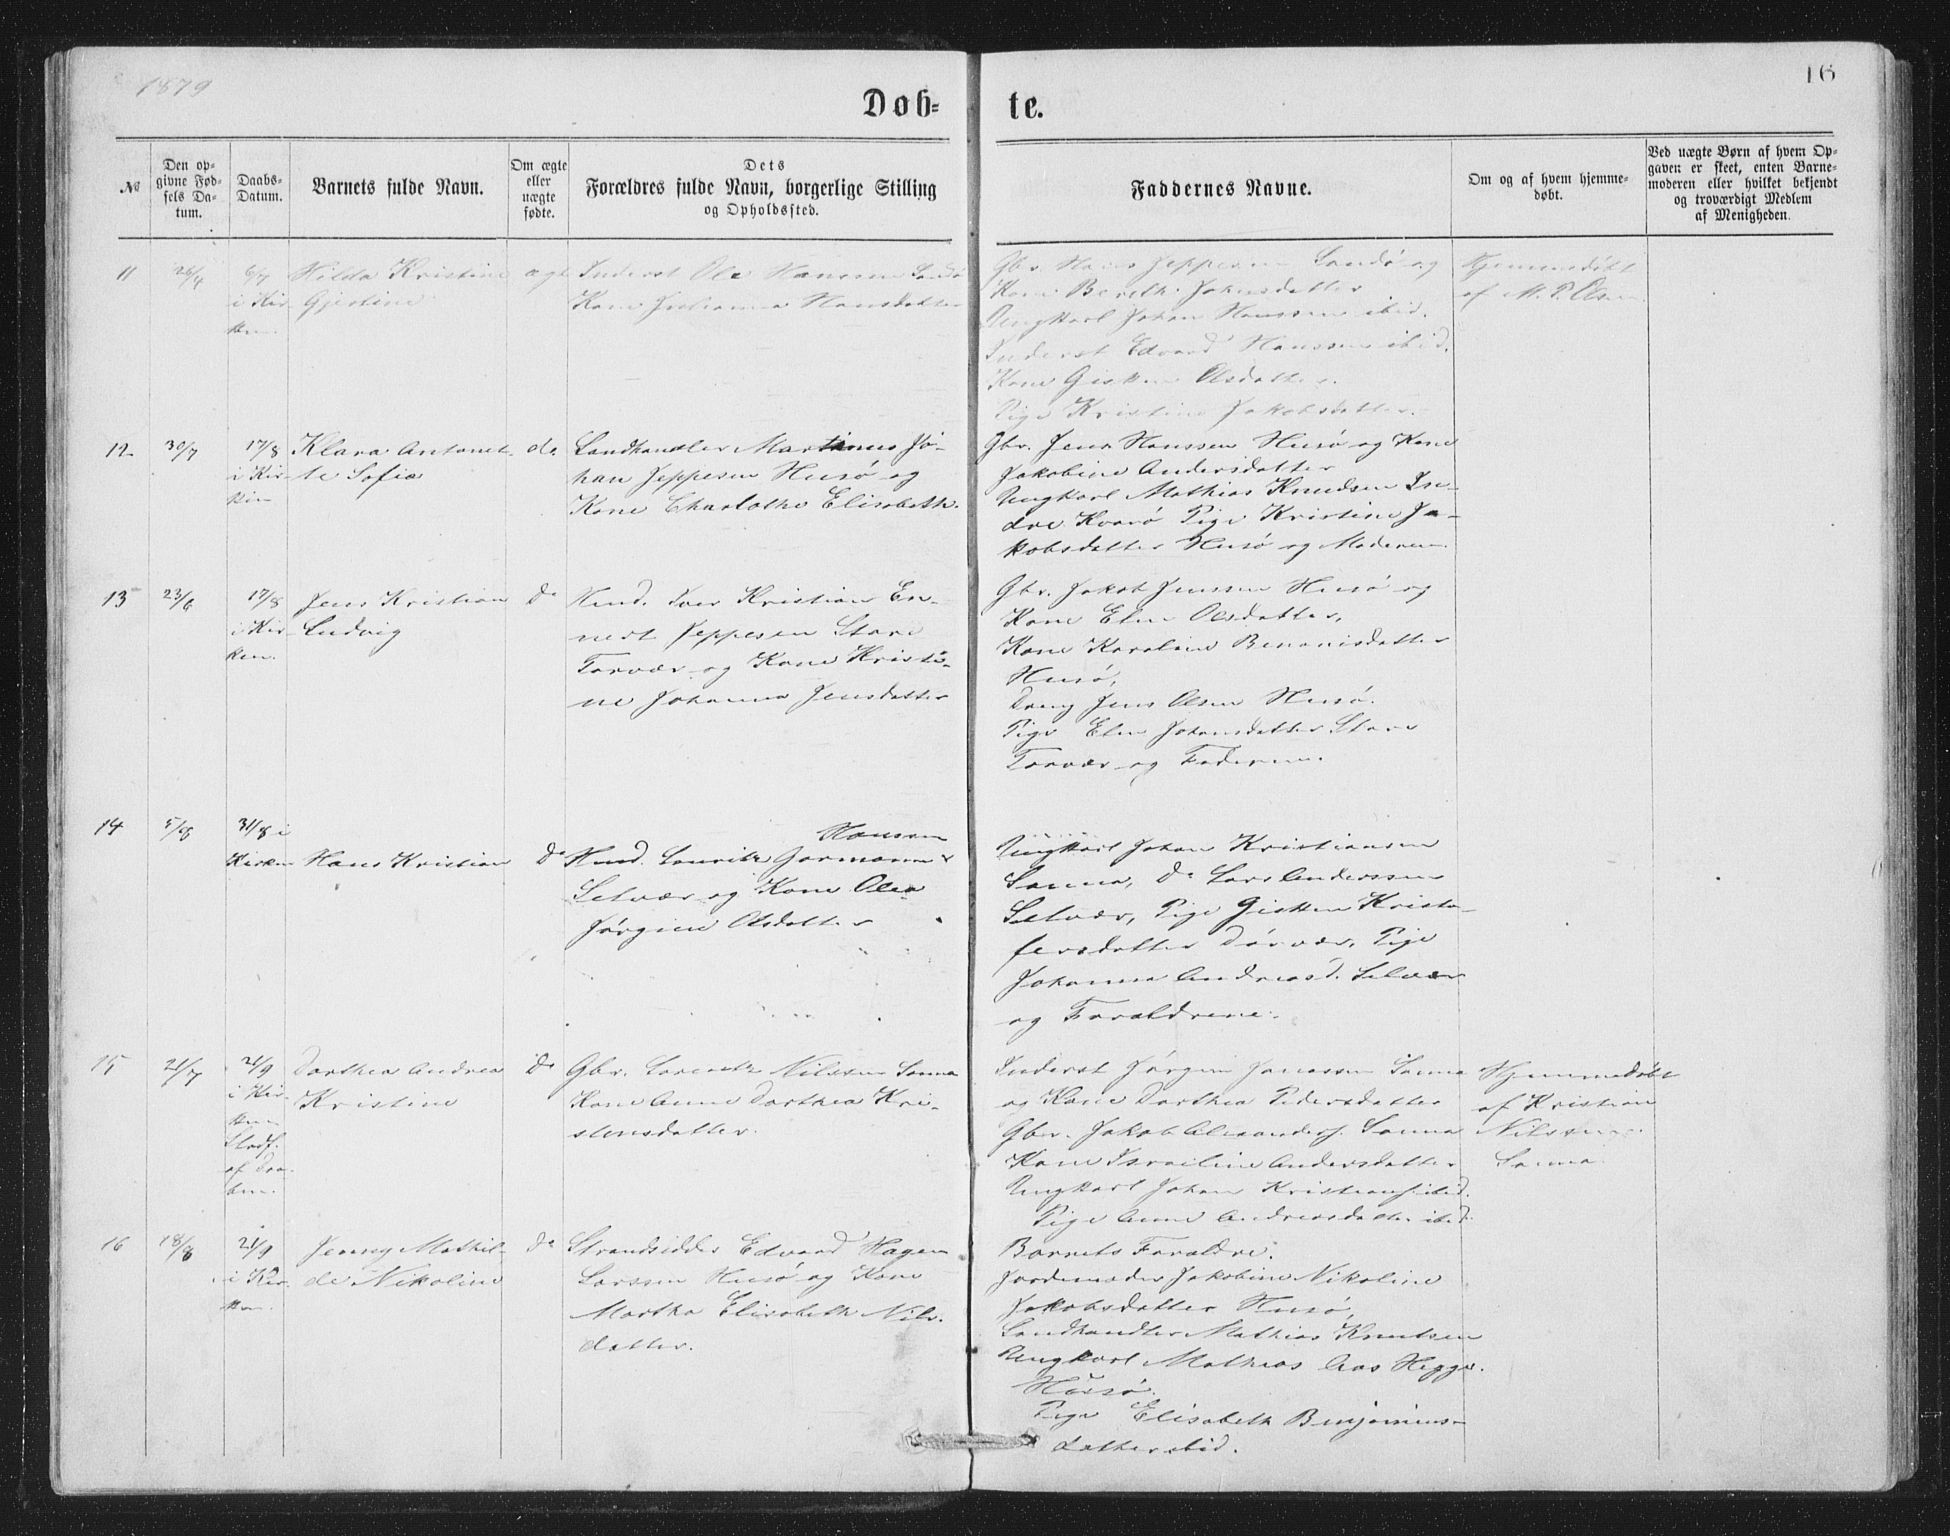 1879
16
Døb-
te.
No
Den op-
givne Fød-
sels Da-
tum.
Daabs-
Datum.
Barnets fulde Navn.
Om ægte
eller
uægte
fødte.
Dets
Forældres fulde Navn, borgerlige Stilling
og Opholdssted.
Faddernes Navne.
Om og af hvem hjemme-
døbt.
Ved uægte Børn af hvem Op-
gaven er skeet, enten Barne-
moderen eller hvilket bekjendt
og troværdigt Medlem
af Menigheden.
11
26/4
6/7
i Kir
ken.
Hilda Kristine
Gjertine
ægt
Inderst Ole Hanssen Sandø
Kone Julianna Hansdatter
Gbr. Hans Jeppesen Sandø og
Kone Bereth Johnsdatter
Ungkarl Johan Hanssen ibid.
Inderst Edvard Hanssen ibid.
Kone Gisken Olsdatter.
Pige Kristine Jakobsdatter.
Hjemmedøbt
af M. P. Olsen
12
30/7
17/8
i Kir-
ken
Klara Antonet-
te Sofie
do
Landhandler Martinus Jo-
han Jeppesen Husø og
Kone Charlothe Elisabeth.
Gbr. Jens Hanssen Husø og Kone
Jakobine Andersdatter
Ungkarl Mathias Knudsen In-
dre Kvarø Pige Kristine Ja-
kobsdatter Husø og Moderen.
13
23/6
17/8
i Kir-
ken.
Jens Kristian
Ludvig
do
Hmd. Iver Kristian En-
nert Jeppesen Store
Torvær og Kone Kristi-
ne Johanna Jensdatter
Gbr. Jakob Jenssen Husø og
Kone Elen Olsdatter,
Kone Karoline Benonisdatter
Husø,
Dreng Jens Olsen Husø.
Pige Elen Johansdatter Store
Torvær og Faderen.
14
5/8
31/8 i
Kirken
Hans Kristian
do
Hansen
Hmd. Lauritz Gormann
Selvær og Kone Olea
Jørgine Olsdatter
Ungkarl Johan Kristiansen
Sanna, do Lars Anderssen
Selvær, Pige Gisken Kristo-
fersdatter Dørvær, Pige
Johanna Andreasd. Selvær
og Forældrene.
15
21/7
21/9
i Kir-
ken
Stadf.
af Daa-
ben.
Dorthea Andrea
Kristine
do
Gbr. Lorentz Nilssen Sanna
Kone Anne Dorthea Kri-
stensdatter.
Inderst Jørgen Jonassen Sanna
og Kone Dorthea Pedersdatter
Gbr. Jakob Alexanders. Sanna
Kone Israeline Andersdatter
Ungkarl Johan Kristians. ibid.
Pige Anne Andreasdatter ibid.
Hjemmedøbt
af Kristian
Nilssen
Sanna.
16
18/8
21/9
i Kir-
ken.
Jenny Mathil-
de Nikoline
do
Strandsidder Edvard Hagen
Larssen Husø og Kone
Martha Elisabeth Nils-
datter.
Barnets Forældre.
Jordemoder Jakobine Nikoline
Jakobsdatter Husø,
Landhandler Mathias Knutsen
Ungkarl Mathias Aas Hegge.
Husø.
Pige Elisabeth Benjamins-
datter ibid.